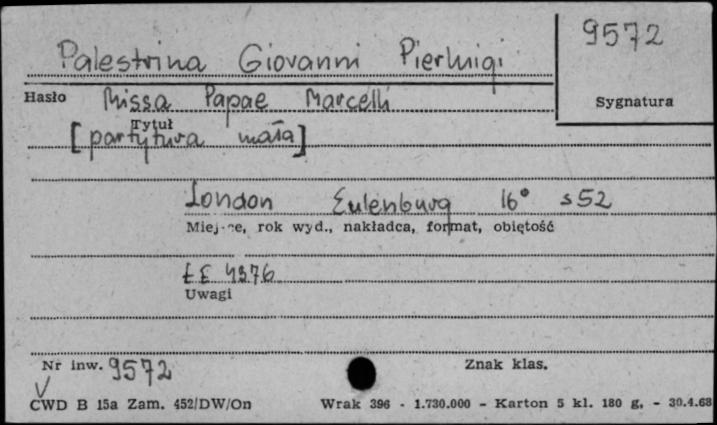 9572
Palestrina Giovanni Pierluigi
Hasło Missa Papae Marcelli
Sygnatura
Tytuł
[partytura mała]
London Eulenburg 16° s 52
Miejsce, rok wyd., nakładca, format, objętość
EE 4376
Uwagi
Nr inw. 9572
Znak klas.
V
CWD B 15a Zam. 452/DW/On Wrak 396 - 1.730.000 - Karton 5 kl. 180 g. - 30.4.68